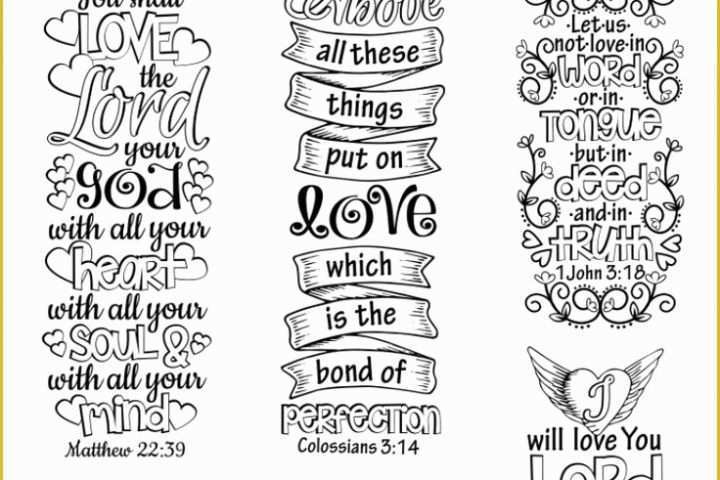 You shall
LOVE
the
Lord
your
God
with all your
heart
with all your
SOUL &
with all your
mind
Matthew 22:39
Above
all these
things
put on
LOVE
which
is the
bond of
PERFECTION
Colossians 3:14
·Let·us·
not·love·in
WORD
·or·in·
TONGUE
·but·in·
deed
·and·in·
TRUTH
1 John 3:18
I
will love You
LORD